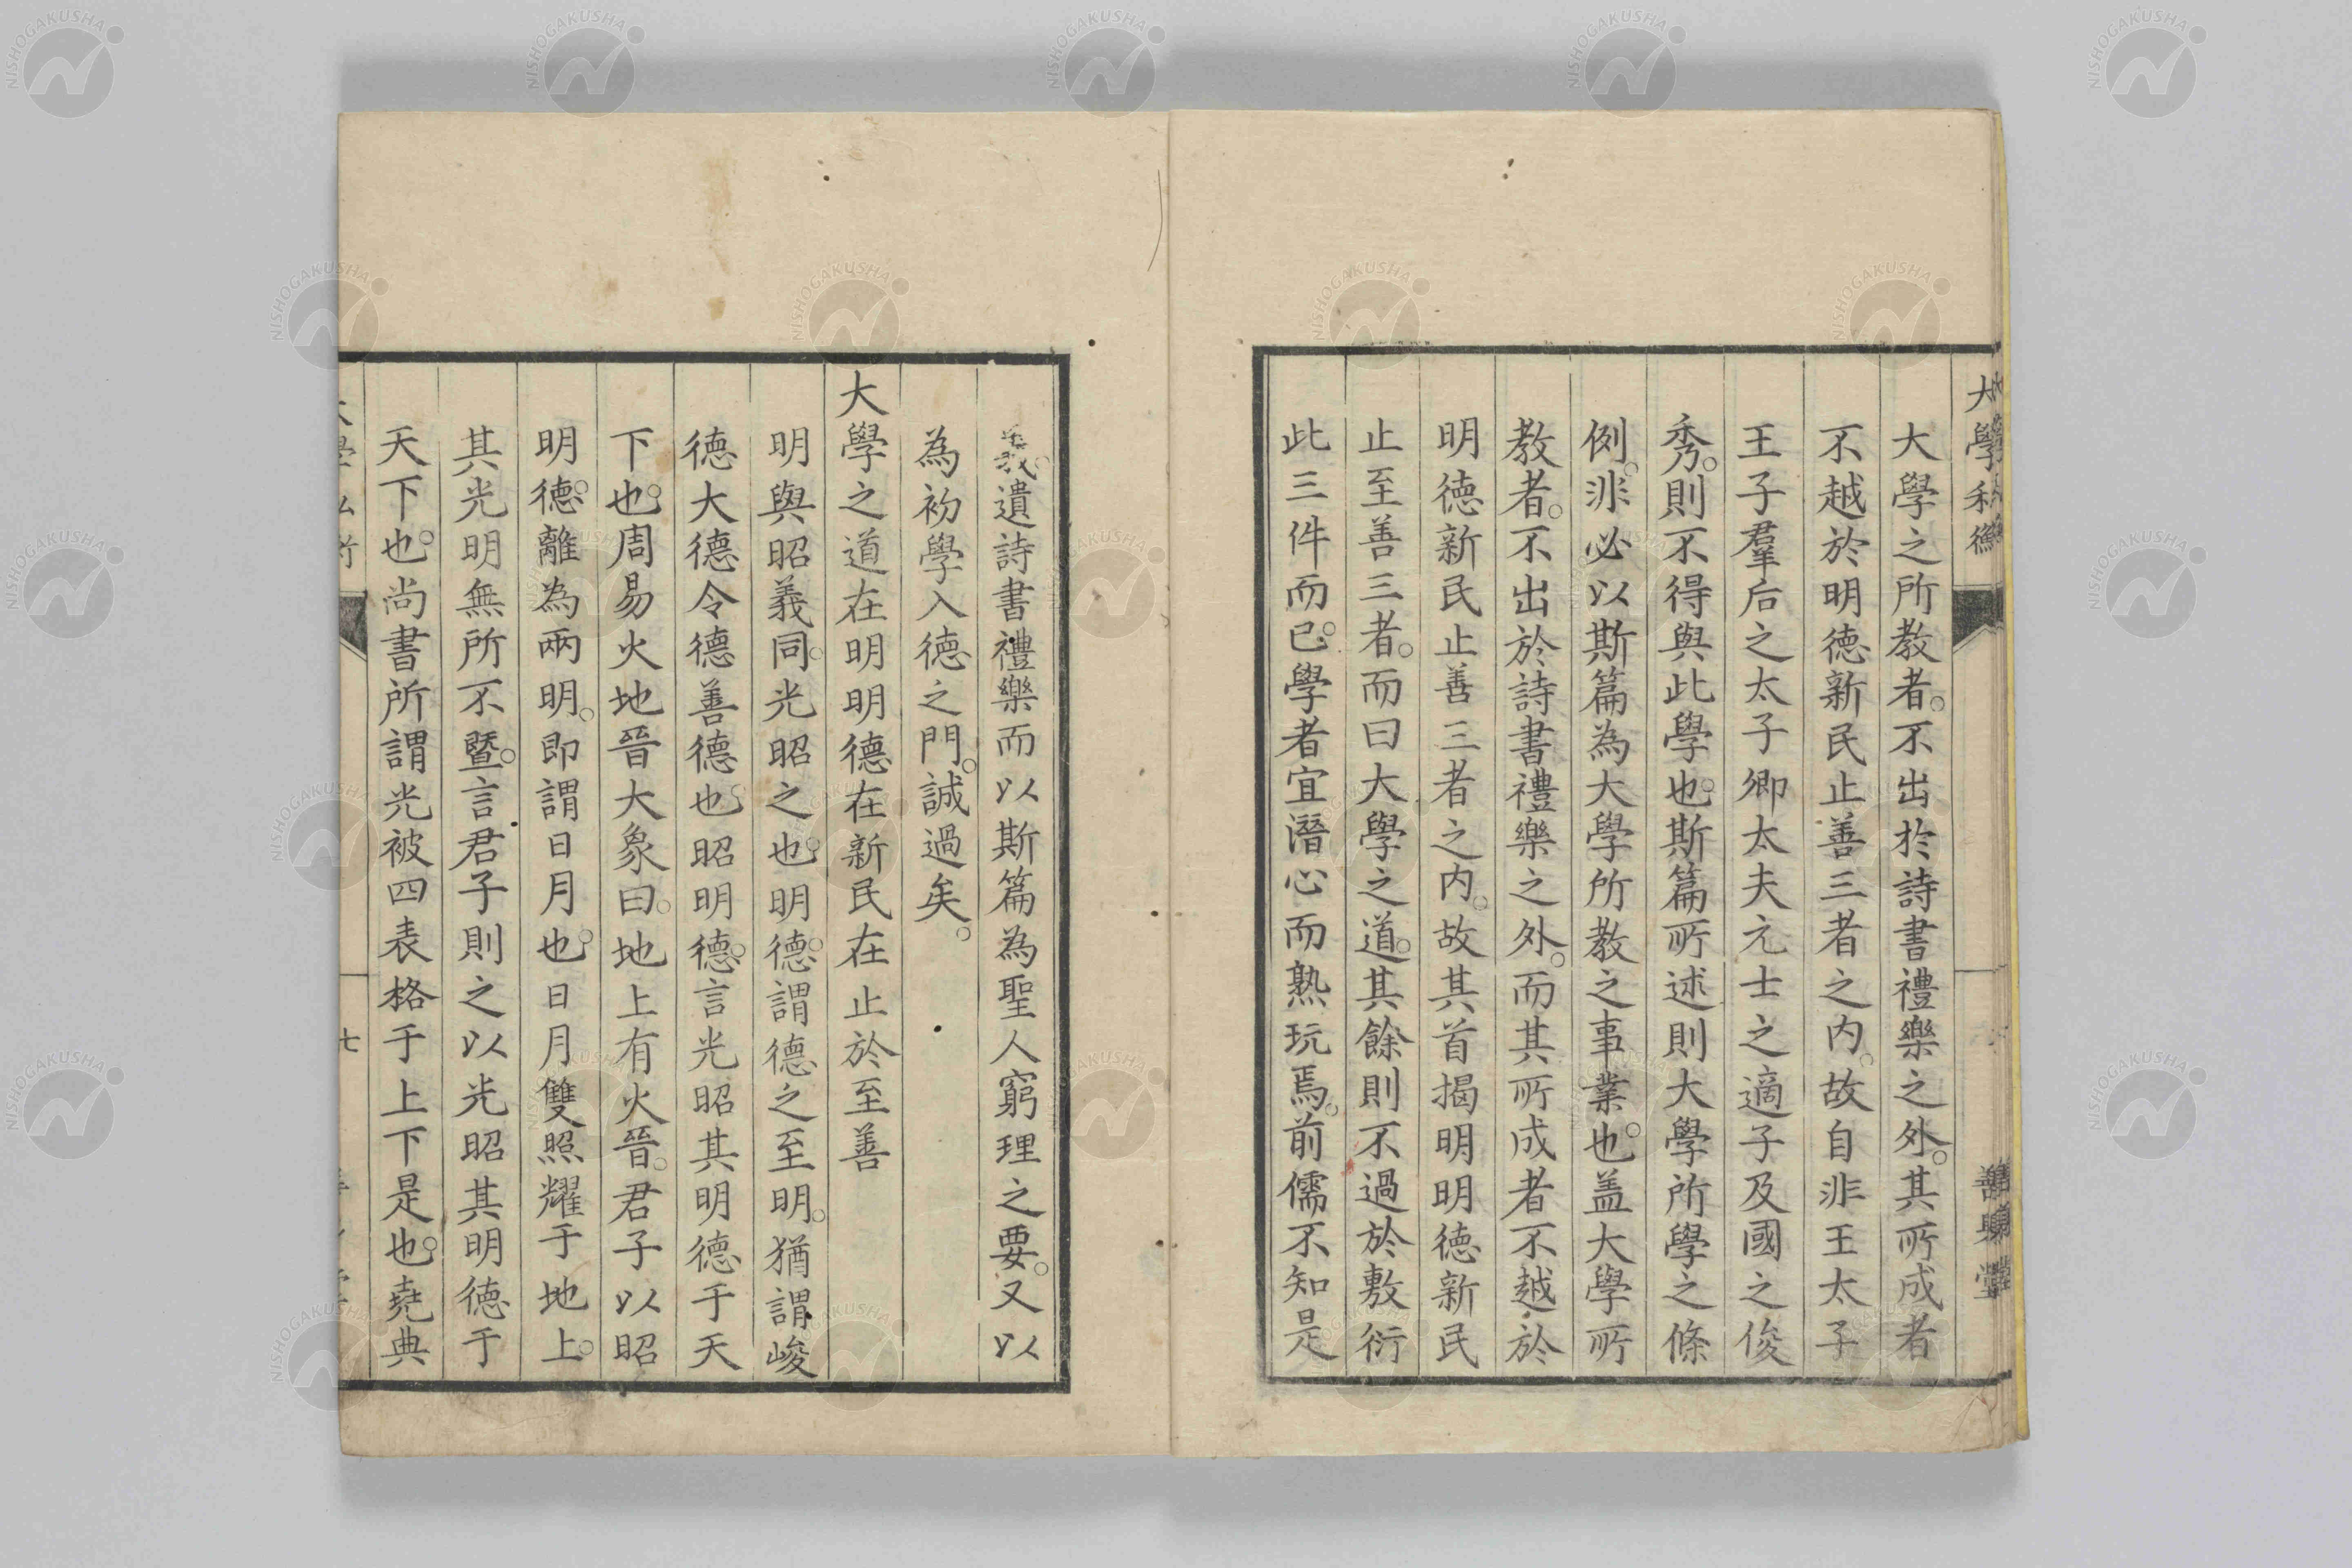 大學之所教者。不出於詩書禮樂之外。其所成者
不越於明德新民止善三者之内。故自非王太子
王子羣后之太子卿太夫元士之適子及國之俊
秀。則不得與此學也。斯篇所述則大學所學之條
例。非必以斯篇為大學所教之事業也。盖大學所
教者。不出於詩書禮樂之外。而其所成者不越於
明德新民止善三者之内。故其首揭明明德新民
止至善三者。而曰大學之道。其餘則不過於敷衍
此三件而已。學者宜潛心而熟玩焉。前儒不知是
義。遺詩書禮樂而以斯篇為聖人窮理之要。又以
為初學入德之門。誠過矣。
大學之道在明明德在新民在止於至善
明與昭義同。光昭之也。明德。謂德之至明。猶謂峻
德大德令德善德也。昭明德。言光昭其明德于天
下也。周易火地晉大象曰。地上有火晉。君子以昭
明德。離為兩明。即謂日月也。日月雙照耀于地上。
其光明無所不曁。言君子則之以光昭其明德于
天下也。尚書所謂光被四表格于上下是也。堯典
七
NISHOGAKUSHA